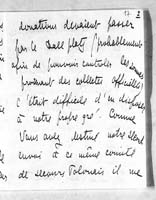 17. I
donations devaient passer
par le Dall plats (probablement
afin de pouvoir controler les sommes
provenant des collectes officielles
c'était difficile d'en disposer
à notre propre gré. Comme
Vous avez destiné notre
envoi à ce même comité
de secours Polonais il me